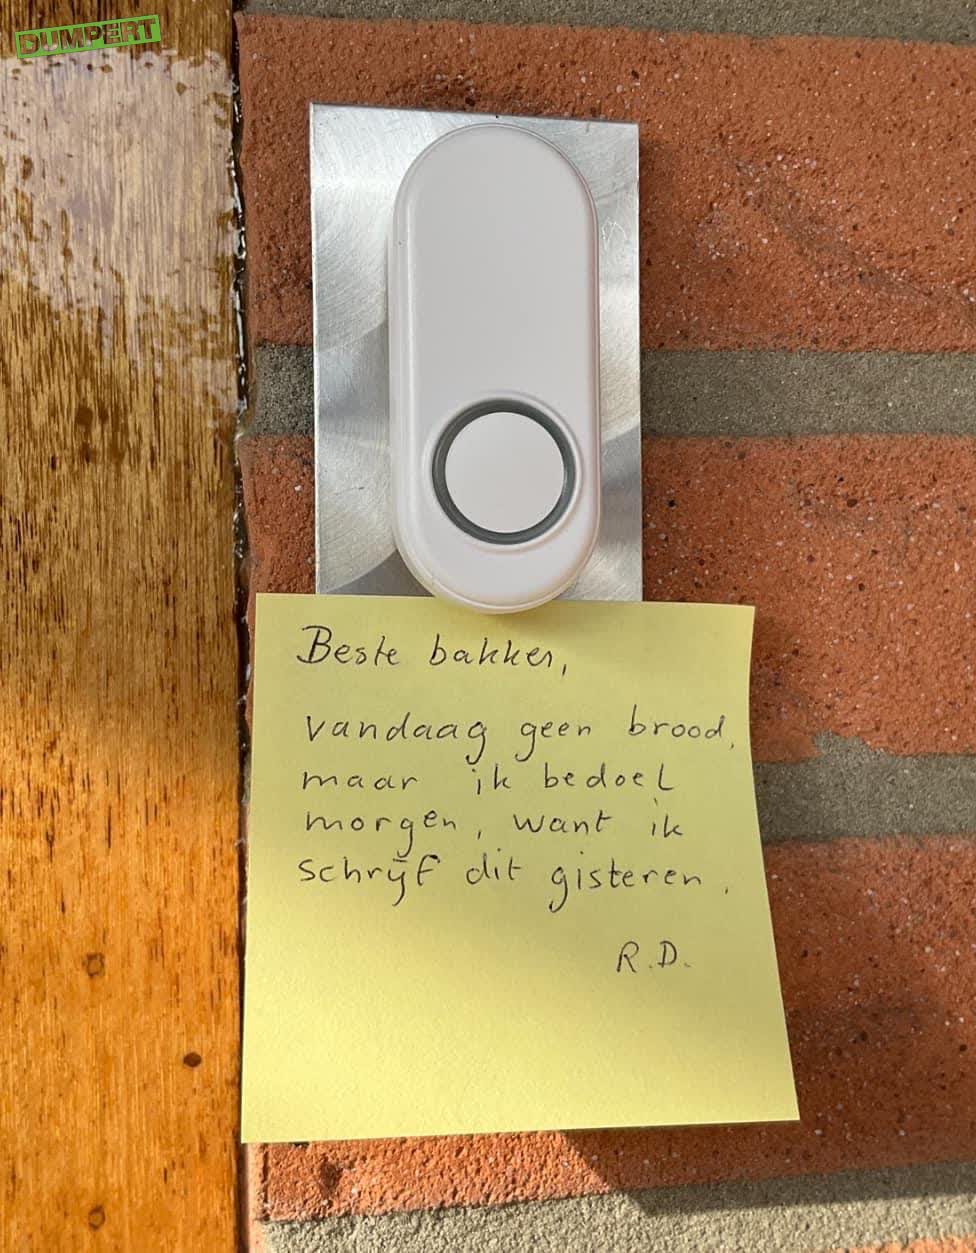 DUMPERT
Beste bakker,
vandaag geen brood,
maar ik bedoel
morgen, want ik
schrijf dit gisteren.
R.D.